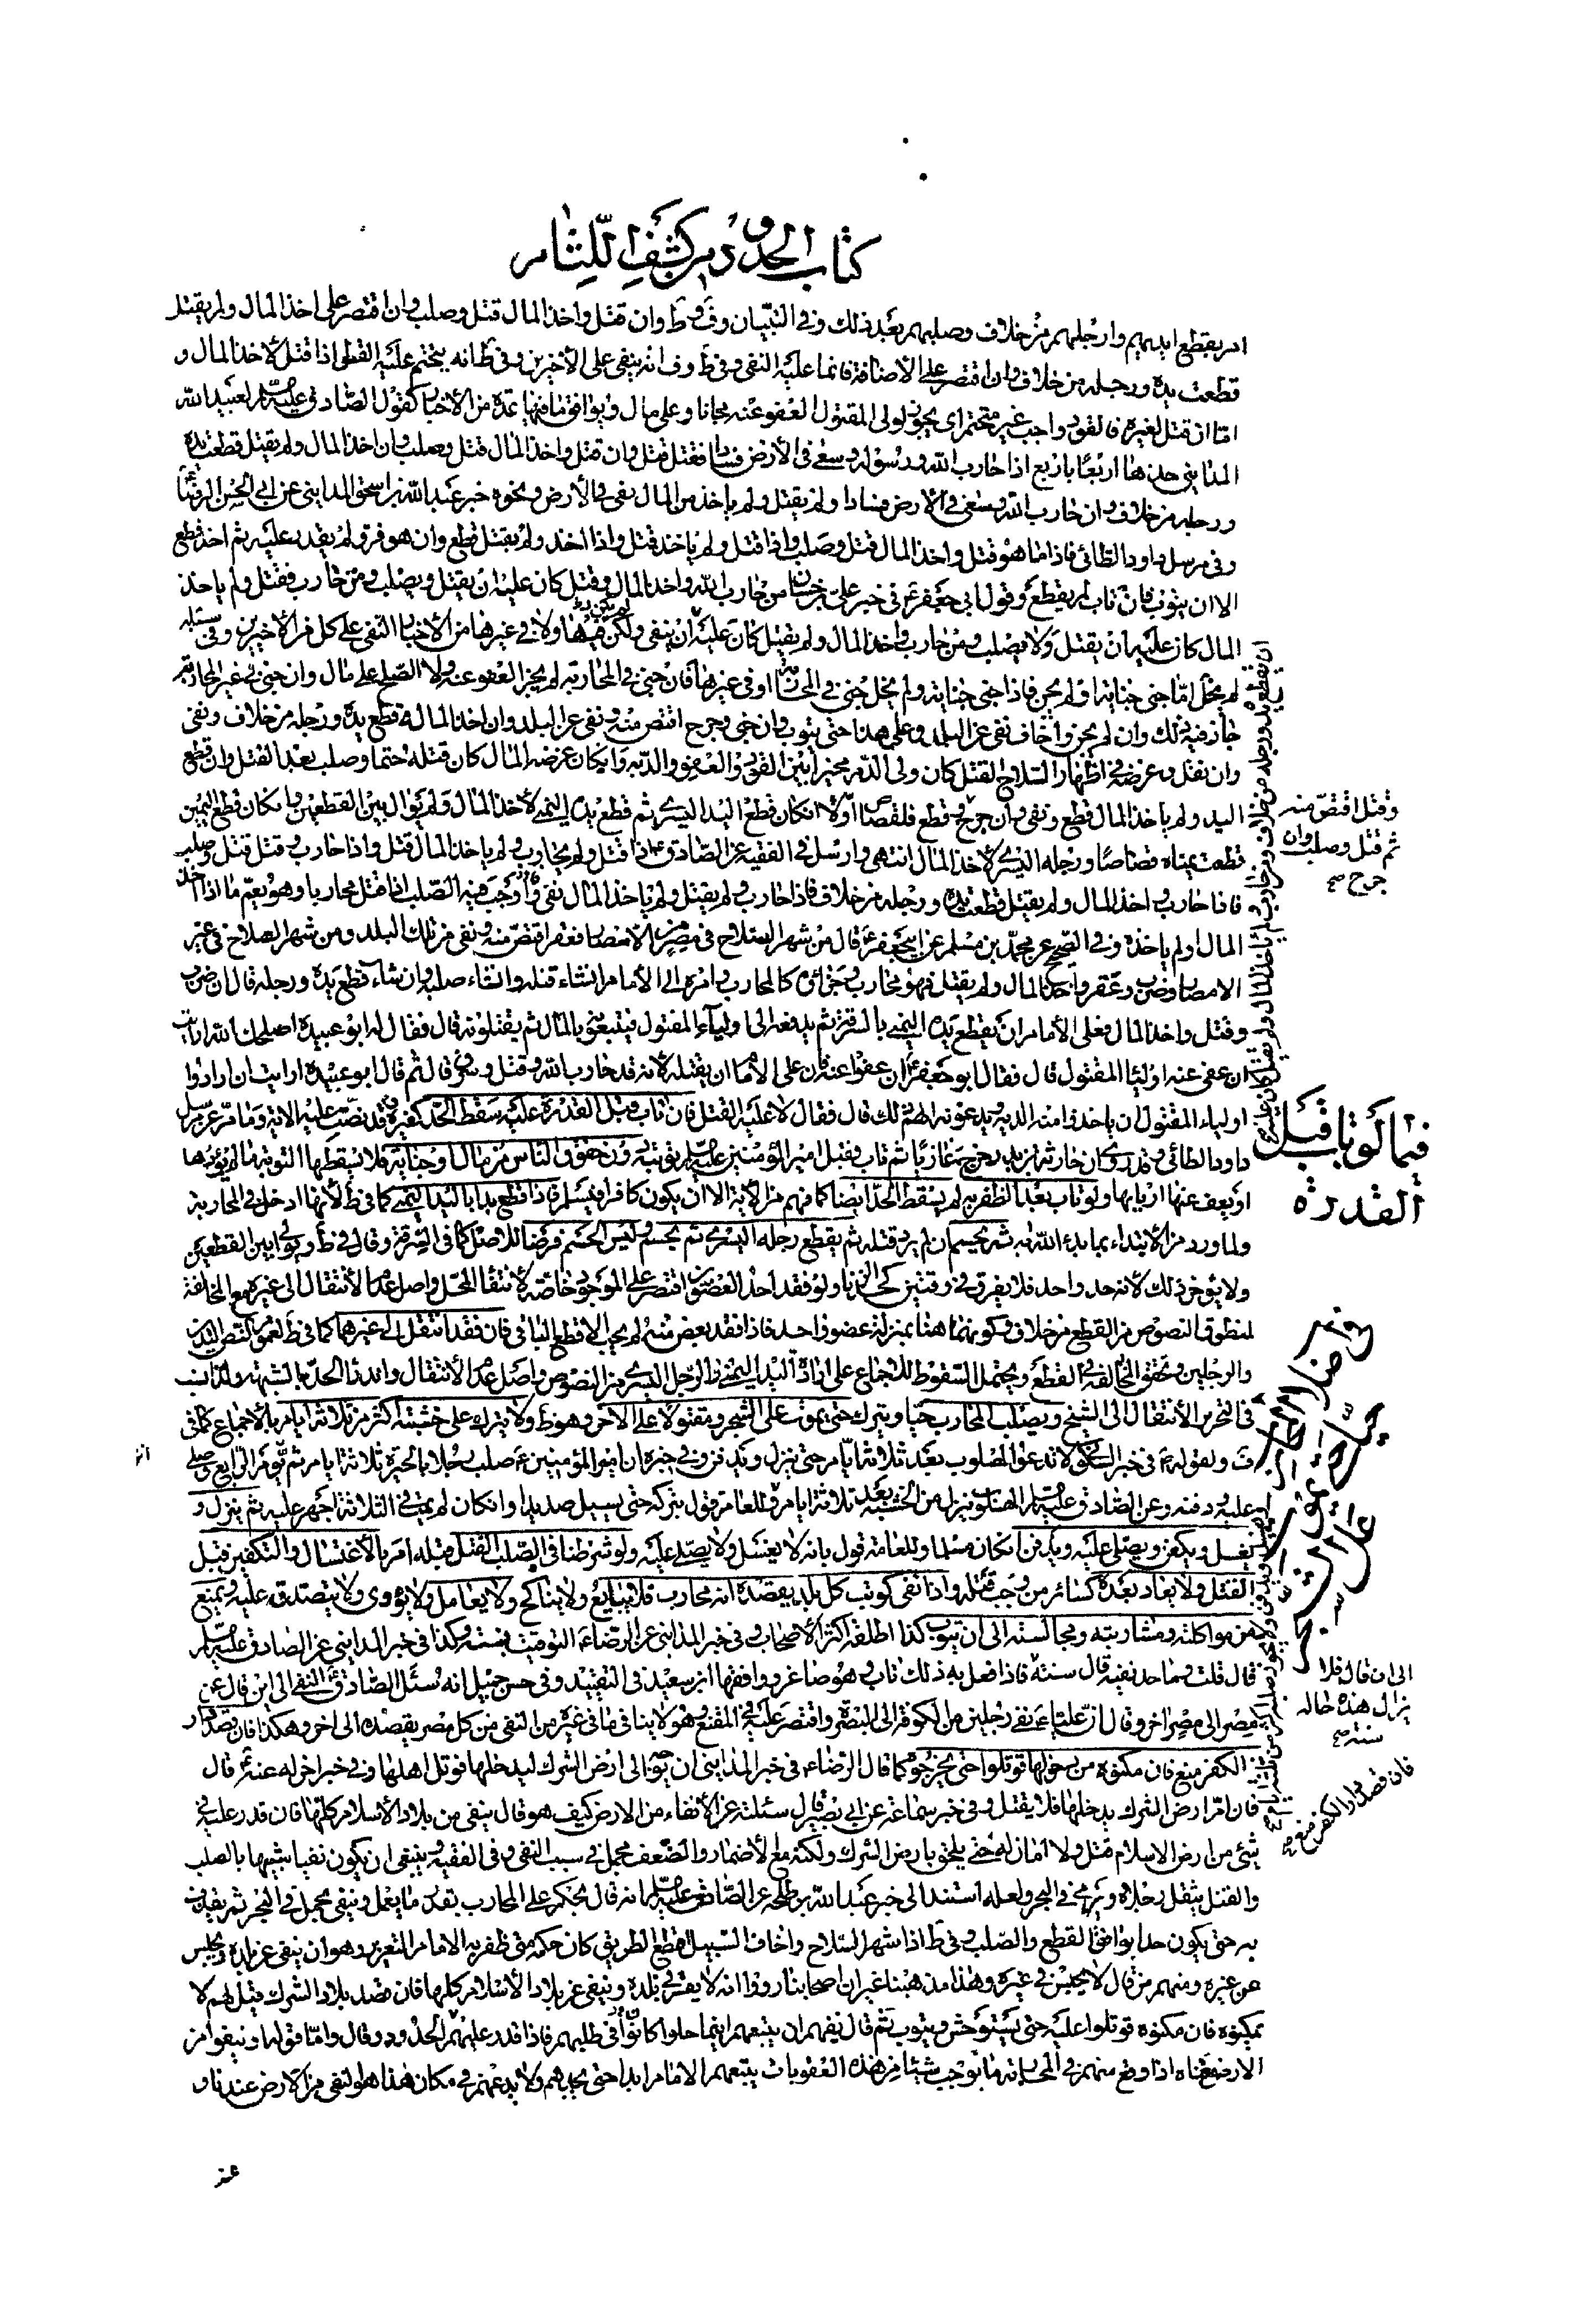 كتاب الحدود من كشف اللثام
امر بقطع ايديهم وارجلهم من خلاف وصلبهم بعد ذلك وفي التبيان وف وط وان قتل واخذ المال قتل وصلب وان اقتصر على اخذ المال ولم يقتل
قطعت يده ورجله من خلاف وان اقتصر على الاخافة فانما عليه النفى وفى ط وف انه ينفى على الأخيرين وفى ط انه يتحتم عليه القطع اذا قتل لاخذ المال و
اما ان قتل لغيره فالقود واجب غير متحتم اى يجوز لولى المقتول العفو عنه مجانا وعلى مال ويوافق ما فيها عدة من الأخبار كقول الصادق عليه السلام لعبيد الله
المدايني خذها اربعا باربع اذا حارب الله ورسوله وسعى في الأرض فسادا فقتل قتل وان قتل واخذ المال قتل وصلب وان اخذ المال ولم يقتل قطعت يده
ورجله من خلاف وان حارب الله وسعى في الأرض فسادا ولم يقتل ولم ياخذ من المال نفى في الأرض ونحوه خبر عبد الله بن اسحق المدايني عن ابى الحسن الرضا
وفى مرسل داود الطائى فاذا ما هو قتل واخذ المال قتل وصلب واذا قتل ولم ياخذ قتل واذا اخذ ولم يقتل قطع وان هو فر ولم يقدر عليه ثم اخذ قطع
الا ان يتوب فان تاب لم يقطع وقول ابى جعفر ع في خبر على بن حسان من حارب الله واخذ المال وقتل كان عليه ان يقتل ويصلب ومن حارب فقتل ولم ياخذ
المال كان عليه ان يقتل ولا يصلب ومن حارب واخذ المال ولم يقتل كان عليه ان ينفى ولكن ليس فيها ولا في غيرها من الأخبار النفى على كل من الأخيرين وفى
لم يخل اما جنى جناية او لم يجن فاذا جنى جناية ولم يخل جنى في المحاربة او في غيرها فان جنى في المحاربة لم يجز العفو عنه ولا الصلح على مال وان جنى في غير المحاربة
جاز فيه ذلك وان لم يجن واخاف نفى عن البلد وعلى هذا حتى يتوب وان جنى وجرح اقتص منه ونفى عن البلد وان اخذ المال قطع يده ورجله من خلاف ونفى
وان قتل وغرضه في اظهار السلاح القتل كان ولى الدم مخيرا بين القود والعفو والدية وان كان غرضه المال كان قتله حتما وصلب بعد القتل وان قطع
اليد ولم ياخذ المال قطع ونفى وان جرح وقطع فلقصاص اولا ان كان قطع اليد اليسرى ثم قطع يده اليمنى لاخذ المال ولم يوال بين القطعين وان كان قطع اليمين
قطعت يمناه قصاصا ورجله اليسرى لاخذ المال انتهى وارسل في الفقيه عن الصادق ع اذا قتل ولم يحارب ولم ياخذ المال قتل واذا حارب وقتل قتل وصلب
فاذا حارب واخذ المال ولم يقتل قطعت يده ورجله من خلاف فاذا حارب ولم يقتل ولم ياخذ المال نفى فاوجب فيه الصلب اذا قتل محاربا وهو يعم ما اذا اخذ
المال او لم ياخذه وفى الصحيح عن محمد بن مسلم عن ابى جعفر ع قال من شهر السلاح في مصر من الامصار فعقر اقتص منه ونفى من تلك البلد ومن شهر السلاح في غير
الامصار وضرب وعقر واخذ المال ولم يقتل فهو محارب وجزاؤه كالمحارب وامره الى الأمام ان شاء قتله وان شاء صلبه وان شاء قطع يده ورجله قال ان ضرب
وقتل واخذ المال فعلى الأمام ان يقطع يده اليمنى بالسرقة ثم يدفعه الى اولياء المقتول فيتبعونه بالمال ثم يقتلونه قال فقال له ابو عبيدة اصلحك الله ارايت
ان عفى عنه اولياء المقتول قال فقال ابو جعفر ع ان عفوا عنه فان على الامام ان يقتله لانه قد حارب الله وقتل وسرق قال ثم قال ابو عبيدة ارايت ان ارادوا
اولياء المقتول ان ياخذوا منه الدية ويدعونه الهم ذلك قال فقال لا عليه القتل فان تاب قبل القدرة عليه سقط الحد كغيره وقد نصت عليه الاية وما مر عن مرسل
داود الطائى وقد روى ان حارثة بن بدر خرج محاربا ثم تاب فقبل امير المؤمنين عليه السلام توبته دون حقوق الناس من مال او جناية فلا يسقطها التوبة ما لم يؤدها
او يعف عنها اربابها ولو تاب بعد الظفر به لم يسقط الحد ايضا كما فهم من الآية الا ان يكون كافرا فيسلم فاذا قطع بدا باليد اليمنى كما في ط لأنها ادخل في المحاربة
ولما ورد من الابتداء بما بدء الله به ثم يحسم ان لم يرد قتله ثم يقطع رجله اليسرى ثم يحسم وليس الحسم فرضا للاصل كما في السرقة وقال في ط ويوالى بين القطعين
ولا يؤخر ذلك لانه حد واحد فلا يفرق في وقتين كحد الزنا ولو فقد احد العضوين اقتصر على الموجود خاصة لانتفاء المحل واصل عدم الانتقال الى غيره مع المخالفة
لمنطوق النصوص من القطع من خلاف وكونهما هنا بمنزلة عضو واحد فاذا فقد بعض منه لم يجب الا قطع الباقى فان فقدا انتقل الى غيرهما كما في ط لعموم النص اليدين
والرجلين وتحقق المخالفة في القطع ويحتمل السقوط للاجماع على ارادة اليد اليمنى والرجل اليسرى من النصوص واصل عدم الانتقال واندراء الحد بالشبهة ولذا نسب
في التحرير الأنتقال الى الشيخ ويصلب المحارب حيا ويترك حتى يموت على الشجر ومقتولا على الآخر وهو ط ولا يترك على خشبته اكثر من ثلاثة ايام بالاجماع كما في
ف ولقوله ع في خبر السكونى لا تدعوا المصلوب بعد ثلاثة ايام حتى ينزل ويدفن وفى خبره ان امير المؤمنين ع صلب رجلا بالحيرة ثلاثة ايام ثم انزله يوم الرابع وصلى
عليه ودفنه وعن الصادق عليه السلام المصلوب ينزل من الخشبة بعد ثلاثة ايام وللعامة قول بتركه حتى يسيل صديدا وان كان لم يمت في الثلاثة اجهز عليه ثم ينزل و
يغسل ويكفن ويصلى عليه ويدفن ان كان مسلما وللعامة قول بانه لا يغسل ولا يصلى عليه ولو شرطنا في الصلب القتل قبله امر بالأغتسال والتكفين قبل
القتل ولا يعاد بعده كسائر من وجب قتله واذا نفى كوتب كل بلد يقصده انه محارب فلا يبايع ولا يناكح ولا يعامل ولا يؤوى ولا يتصدق عليه ويمنع
من مواكلته ومشاربته ومجالسته الى ان يتوب كذا اطلقه اكثر الأصحاب وفى خبر المدايني عن الرضا ع التوقيت بسنة وكذا في خبر المدايني عن الصادق عليه السلام
قال قلت وما حد نفيه قال سنة فاذا فعل به ذلك تاب وهو صاغر ووافقها ابن سعيد في التقييد وفى حسن جميل انه سئل الصادق ع النفى الى اين قال من
مصر الى مصر اخر وقال ان عليا ع نفى رجلين من الكوفة الى البصرة واقتصر عليه في المقنع وهو لا ينافى ما في غيره من النفى من كل مصر يقصده الى اخر وهكذا فان قصد دار
الكفر منع فان مكنوه من دخولها قوتلوا حتى يخرجوه كما قال الرضا ع في خبر المدايني ان توجه الى ارض الشرك ليدخلها قوتل اهلها وفى خبر اخر له عنه ع قال
فان ام ارض الشرك يدخلها قال يقتل وفى خبر سماعة عن ابى بصير قال سئلته عن الأنفاء من الارض كيف هو قال ينفى من بلاد الأسلام كلها فان قدر عليه في
شئ من ارض الاسلام قتل ولا امان له حتى يلحق بارض الشرك ولكنه مع الأضمار والضعف مجمل في سبب النفى وفى الفقيه وينبغى ان يكون نفيا شبيها بالصلب
والقتل يثقل رجلاه ويرمى في البحر ولعله استند الى خبر عبد الله بن طلحة عن الصادق عليه السلام انه قال يحكم على المحارب بقدر ما يعمل وينفى يحمل في البحر ثم يقذف
به حتى يكون حدا يوافق القطع والصلب وفى ط اذا شهر السلاح واخاف السبيل لقطع الطريق كان حكمه متى ظفر به الامام التعزير وهو ان ينفى عن بلده ويحبس
عن غيره ومنهم من قال لا يحبس في غيره وهذا مذهبنا غير ان اصحابنا رووا انه لا يقر في بلده وينفى عن بلاد الأسلام كلها فان قصد بلاد الشرك قيل لهم لا
يمكنوه فان مكنوه قوتلوا عليه حتى يستوحش ويتوب ثم قال نفيهم ان يتبعهم اينما حلوا كانوا في طلبهم فاذا قدر عليهم اقام عليهم الحدود وقال واما قوله او ينفوا من
الارض معناه اذا وقع منهم في المحاربة ما يوجب شيئا من هذه العقوبات يتبعهم الامام ابدا حتى يجدهم ولا يدعهم في مكان هذا هو النفى من الارض عندنا و
وقتل اقتص منه
ثم قتل وصلب وان
جرح صح
فيما لو تاب قبل
القدرة
الى ان قال فلا
يزال هذه حاله
سنة صح
فان قصد دار الكفر منع صح